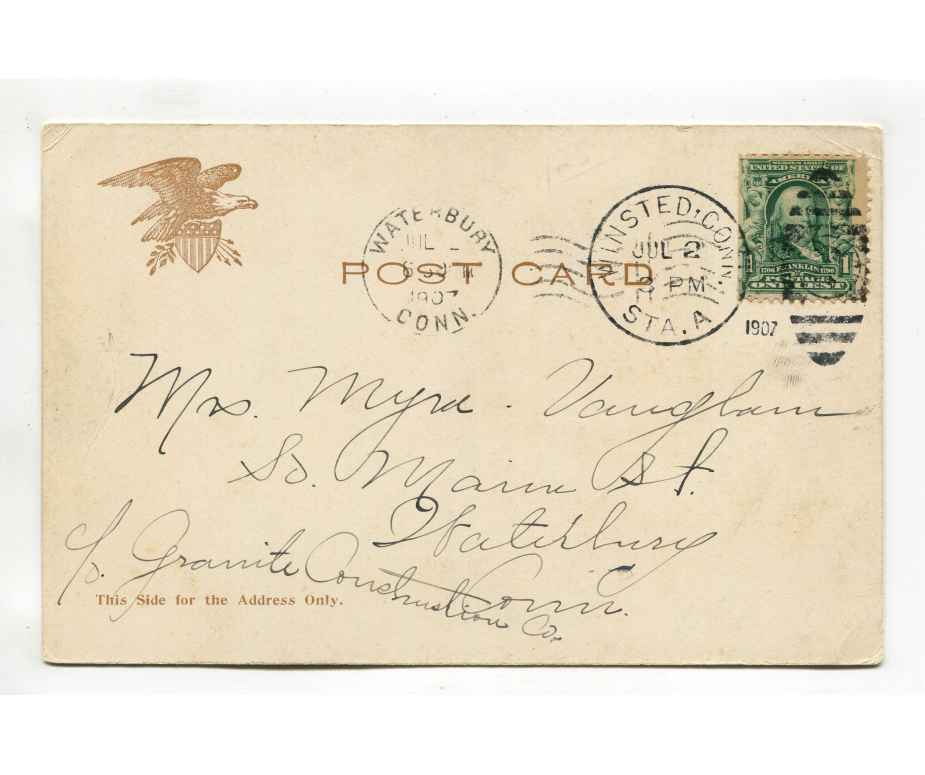 UNITED STATES OF
AMERICA
1790 FRANKLIN 1790
1 POSTAGE 1
ONE CENT
WATERBURY
JUL
1907
CONN.
WINSTED, CONN.
JUL 2
3 PM
STA. A
1907
POST CARD
Mrs. Myra Vaughan
So. Main St.
Waterbury
Conn.
c/o. Granite Construction Co.
This Side for the Address Only.